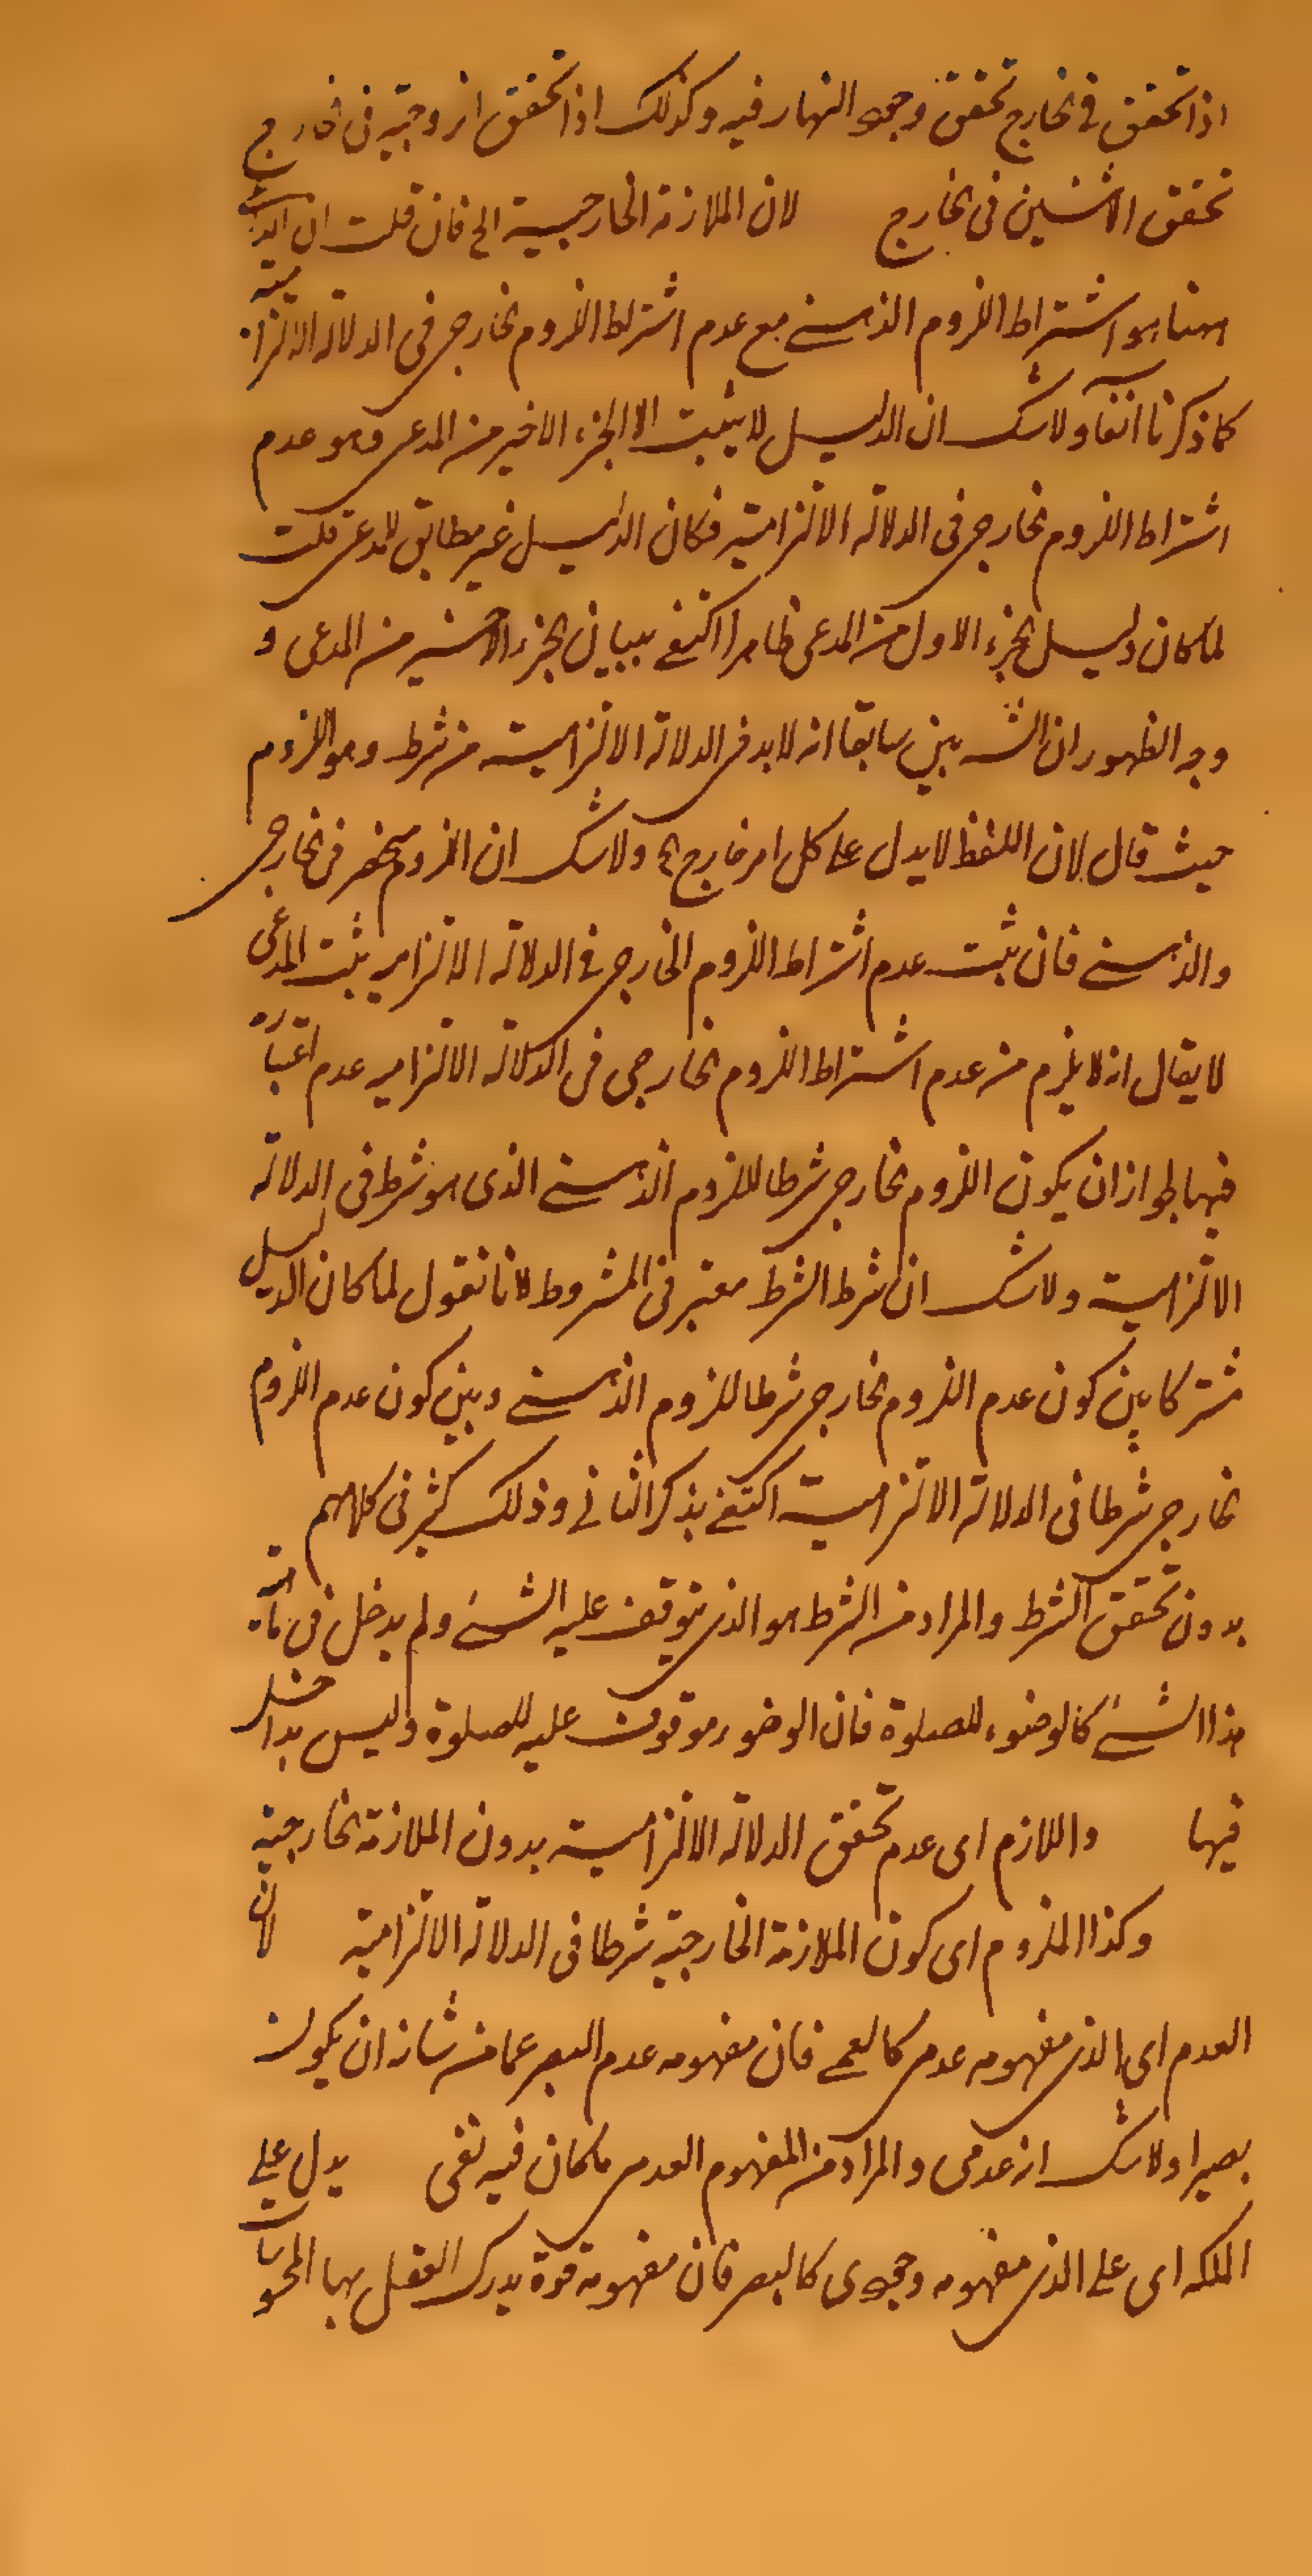 اذا تحقق فى الخارج تحقق وجود النهار فيه وكذلك اذا تحقق الزوجية فى الخارج
تحقق الاثنين فى الخارج لان الملازمة الخارجية الخ فان قلت ان المدعى
ههنا هو اشتراط اللزوم الذهنى مع عدم اشتراط اللزوم الخارجى فى الدلالة الالتزامية
كما ذكرنا انفا ولا شك ان الدليل لا يثبت الا الجزء الاخير من المدعى وهو عدم
اشتراط اللزوم الخارجى فى الدلالة الالتزامية فكان الدليل غير مطابق للمدعى قلت
لما كان دليل الجزء الاول من المدعى ظاهرا اكتفى ببيان الجزء الاخير من المدعى و
وجه الظهور ان الش بين سابقا انه لا بد فى الدلالة الالتزامية من شرط وهو اللزوم
حيث قال لان اللفظ لا يدل على كل امر خارج عنه ولا شك ان اللزوم منحصر فى الخارجى
والذهنى فان ثبت عدم اشتراط اللزوم الخارجى فى الدلالة الالتزامية ثبت المدعى
لا يقال انه لا يلزم من عدم اشتراط اللزوم الخارجى فى الدلالة الالتزامية عدم اعتباره
فيها لجواز ان يكون اللزوم الخارجى شرطا للزوم الذهنى الذى هو شرط فى الدلالة
الالتزامية ولا شك ان شرط الشرط معتبر فى المشروط لانا نقول لما كان الدليل
مشتركا بين كون عدم اللزوم الخارجى شرطا للزوم الذهنى وبين كون عدم اللزوم
الخارجى شرطا فى الدلالة الالتزامية اكتفى بذكر الثانى وذلك كثير فى كلامهم
بدون تحقق الشرط والمراد من الشرط هو الذى يتوقف عليه الشئ ولم يدخل فى ماهية
هذا الشئ كالوضوء للصلوة فان الوضوء موقوف عليه للصلوة وليس بداخل
فيها واللازم اى عدم تحقق الدلالة الالتزامية بدون الملازمة الخارجية
وكذا الملزوم اى كون الملازمة الخارجية شرطا فى الدلالة الالتزامية لان
العدم اى الذى مفهومه عدمى كالعمى فان مفهومه عدم البصر عما من شانه ان يكون
بصيرا ولا شك انه عدمى والمراد من المفهوم العدمى ما كان فيه نفى يدل على
الملكه اى على الذى مفهومه وجودى كالبصر فان مفهومه قوة يدرك العقل بها المحسوسات